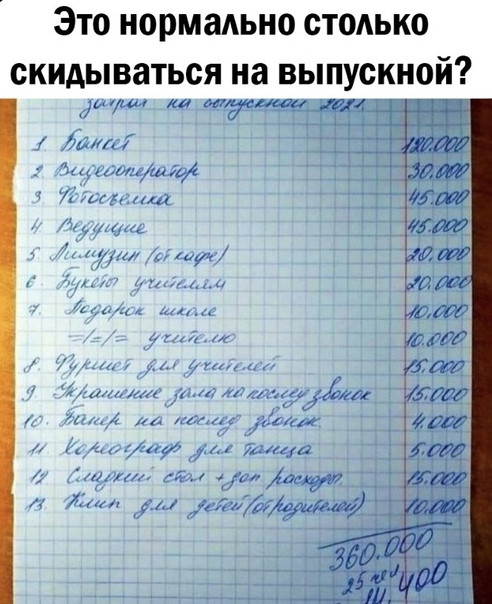 Это нормально столько
скидываться на выпускной?
затрат на выпускной 2021.
1 Банкет 120.000
2 Видеооператор 30.000
3 Фотосъемка 45.000
4. Ведущие 45.000
5. Лимузин (от кафе) 20.000
6. Букеты учителям 20.000
7. Подарок школе 10.000
=/=/= учителю 10.000
8. Фуршет для учителей 15.000
9. Украшение зала на послед звонок 15.000
10. Банер на послед звонок 4.000
11 Хореограф для танца 5.000
12 Сладкий стол + доп расходы. 15.000
13. Клип для детей (от родителей) 10.000
360.000
25 чел
14.400